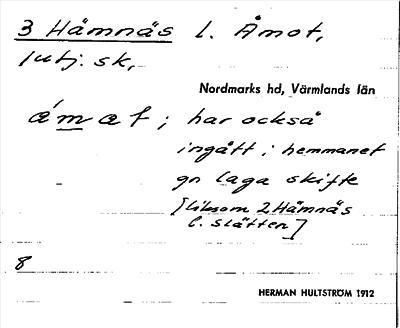 3 Hämnäs l. Åmot,
1utj. sk,
Nordmarks hd, Värmlands län
har också
ingått i hemmanet
gn laga skifte
[liksom 2 Hämnäs
l. Slätten]
8
HERMAN HULTSTRÖM 1912